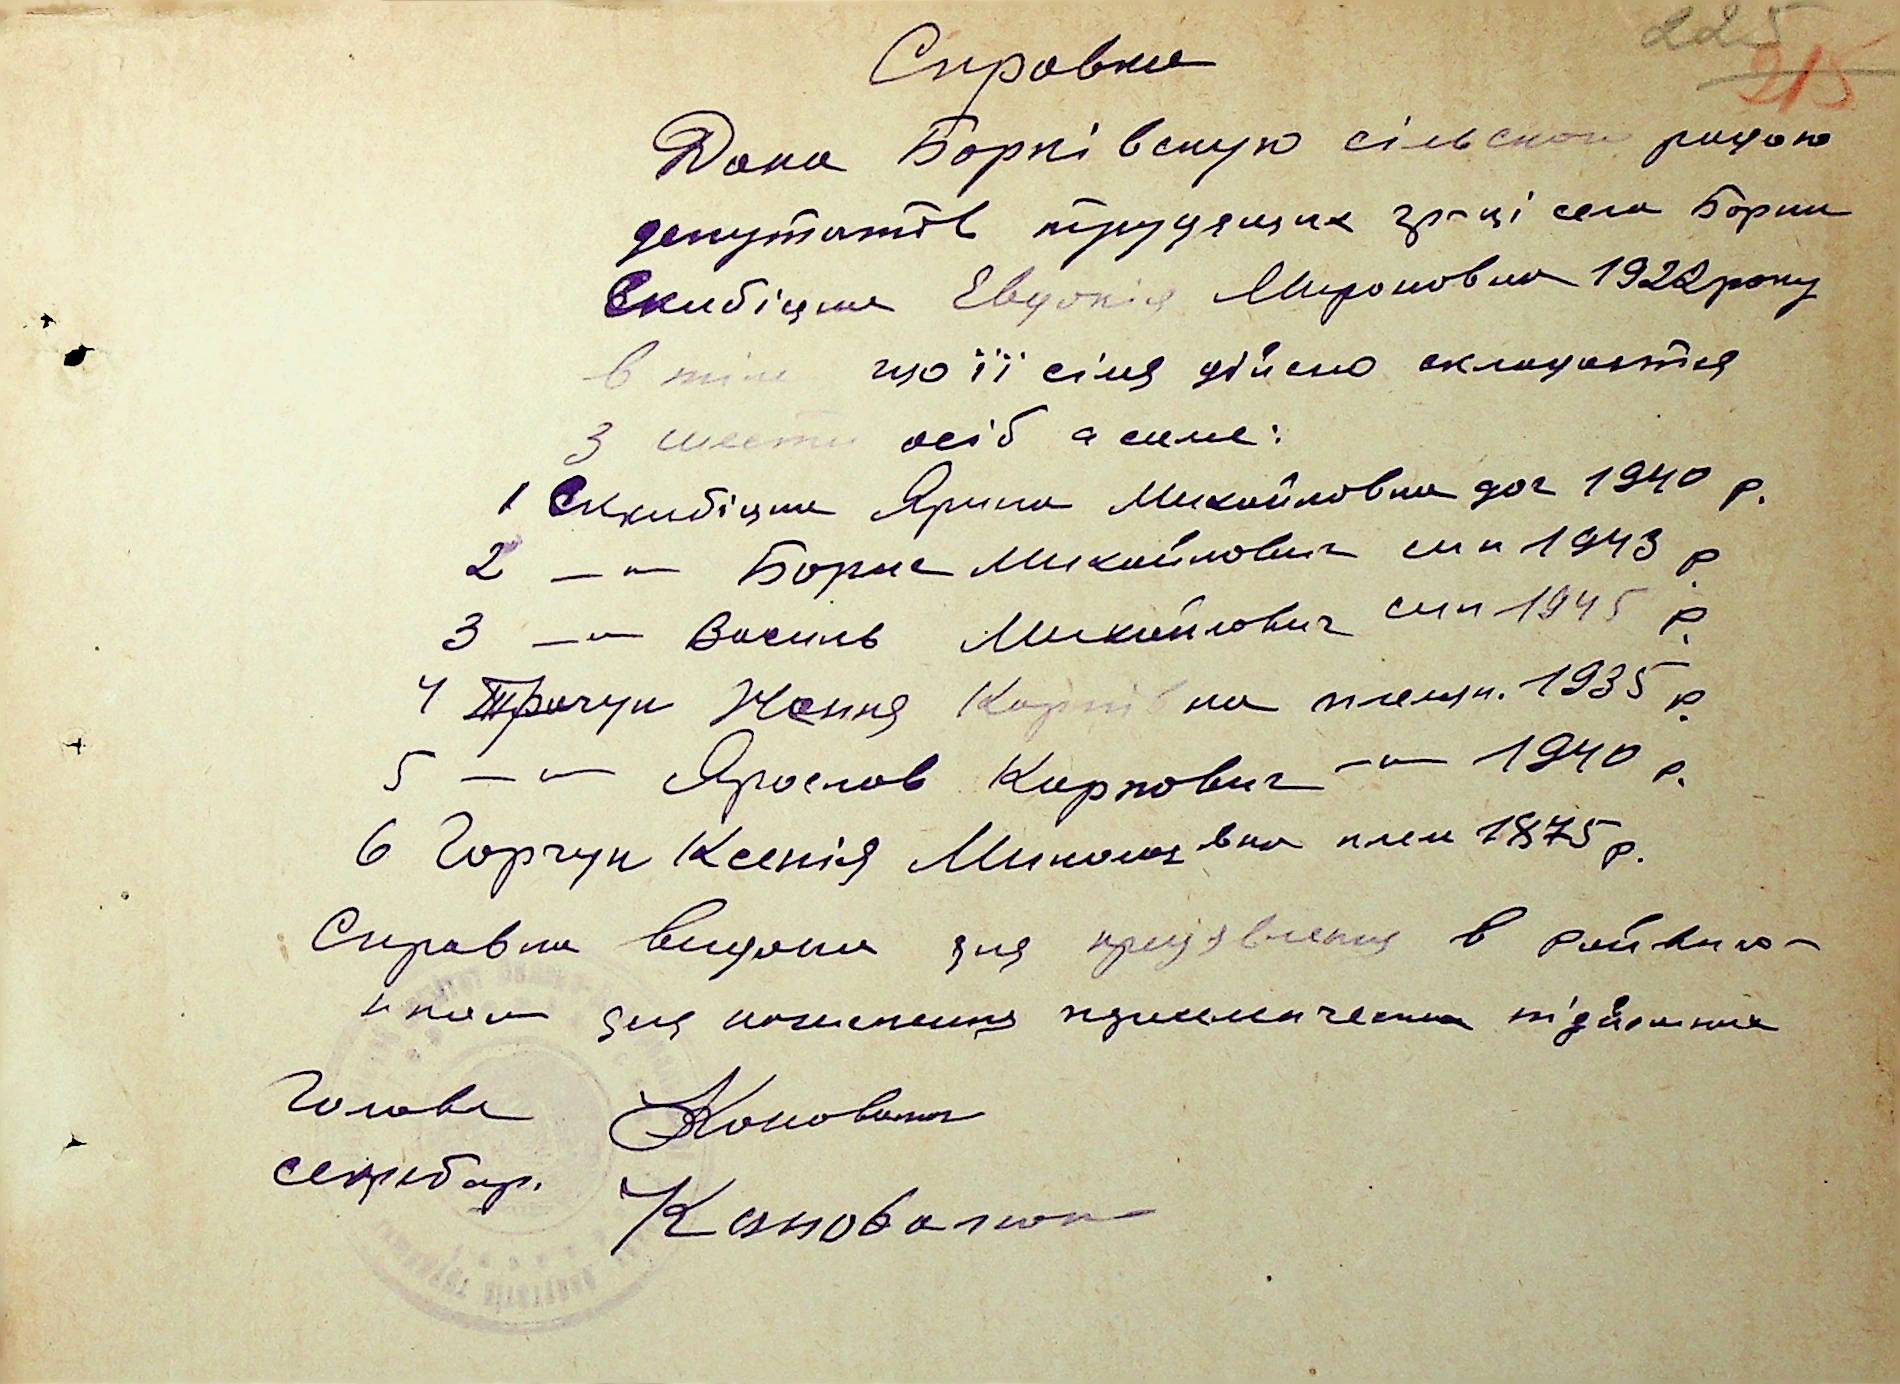 225
215
Справка
Дана Борківскую сільскою радою
депутатів трудящих гр-ці села Борки
Скибіцка Евдокія Мироновна 1922 року
в тім що її сімя дійсно складається
З шести осіб а саме:
1 Скибіцка Ярина Михайловна доч 1940 р.
2 —"— Борис Михайлович син 1943 р.
3 —"— Василь Михайлович син 1945 р.
4 Трачук Ження Карпівна племян. 1935 р.
5 —"— Ярослав Карпович —"— 1940 р.
6 Горчук Ксенія Миколаєвна плем 1875 р.
Справка видана для предявлення в
для
Голова Коновалюк
секретар. Коновалюк